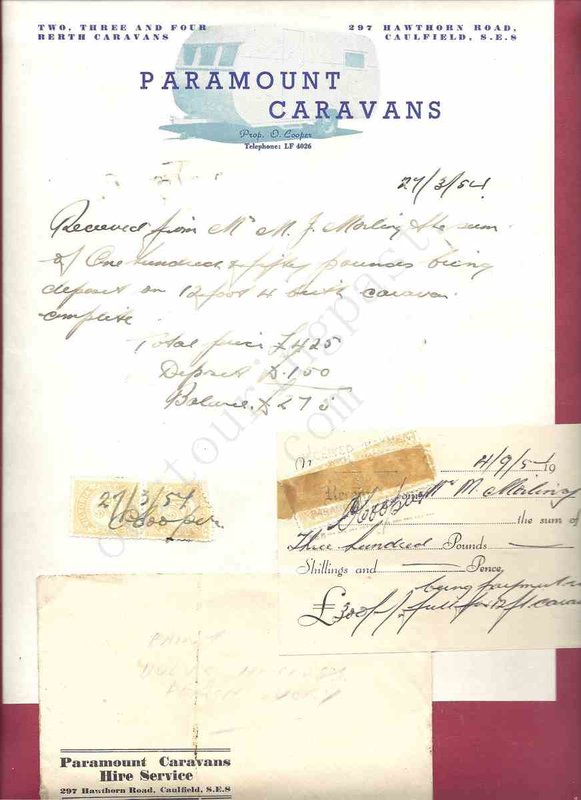 TWO, THREE AND FOUR
BERTH CARAVANS
297 HAWTHORN ROAD,
CAULFIELD, S.E.8
PARAMOUNT
CARAVANS
Prop. O. Cooper
Telephone: LF 4026
27/3/54
Received from Mr M. J. Morling the sum
of One hundred & fifty pounds being
deposit on 12 foot 4 berth caravan
complete
Total price £425
Deposit £150
Balance £275
27/3/54
O Cooper
RECEIVED PAYMENT
4/9/54 19
Mr M. Morling
the sum of
Three hundred Pounds
Shillings and Pence,
£300/-/- being payment in
full for 12 ft caravan
PAINT
IVORY
Paramount Caravans
Hire Service
297 Hawthorn Road, Caulfield, S.E.8
ourtouringpast.com